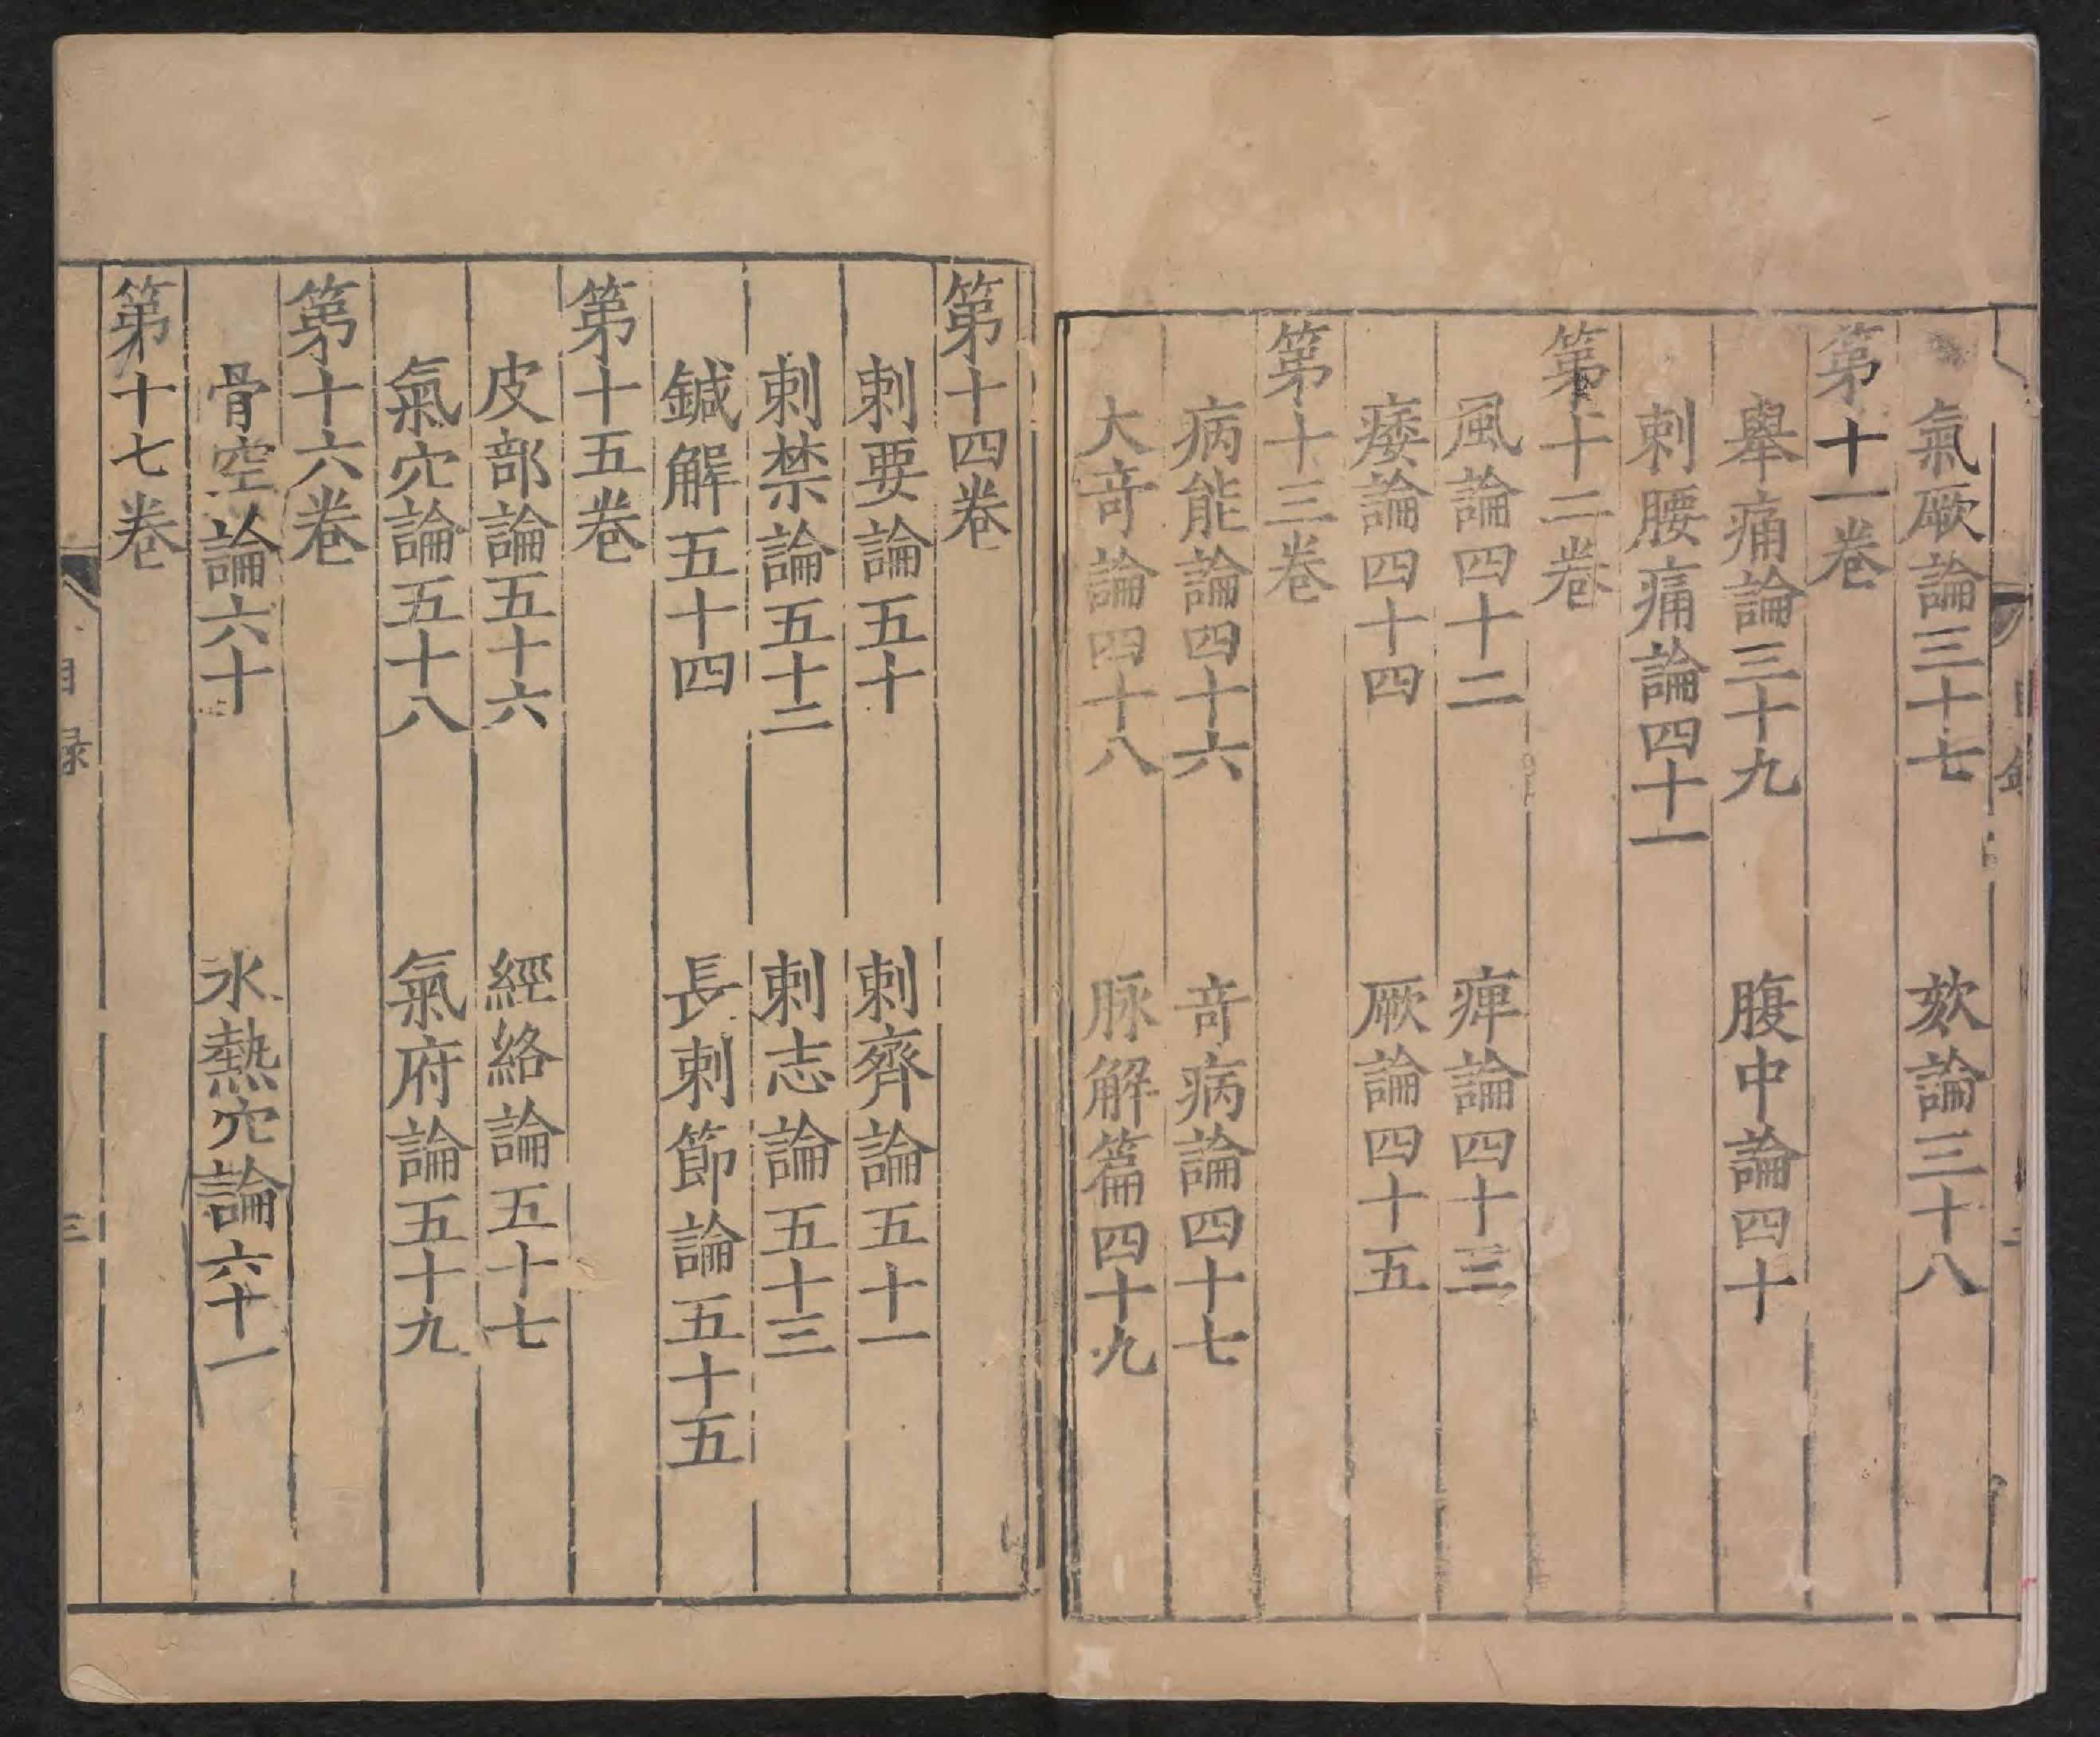 氣厥論三十七　欬論三十八
第十一卷
舉痛論三十九　腹中論四十
刺腰痛論四十一
第十二卷
風論四十二　痺論四十三
痿論四十四　厥論四十五
第十三卷
病能論四十六　竒病論四十七
大竒論四十八　脉解篇四十九
第十四卷
刺要論五十　刺齊論五十一
刺禁論五十二　刺志論五十三
鍼解五十四　長刺節論五十五
第十五卷
皮部論五十六　經絡論五十七
氣穴論五十八　氣府論五十九
第十六卷
骨空論六十　水熱穴論六十一
第十七卷
目録　三